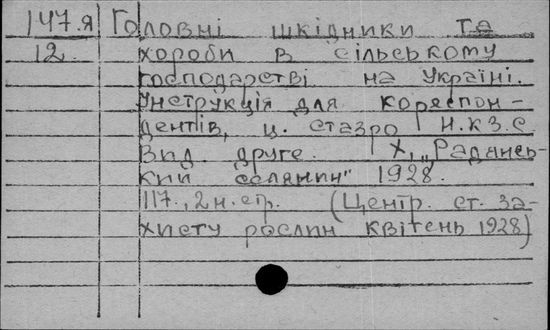 147.я Головні шкідники та
12. хороби в сільському
господарстві на Україні.
Інструкція для кореспон-
дентів, ц. стазро Н.К.З.С
Вид. друге. Х, „Радянсь-
кий селянин" 1928.
117., 2 н. ст. (Центр. ст. за-
хисту рослин квітень 1928)